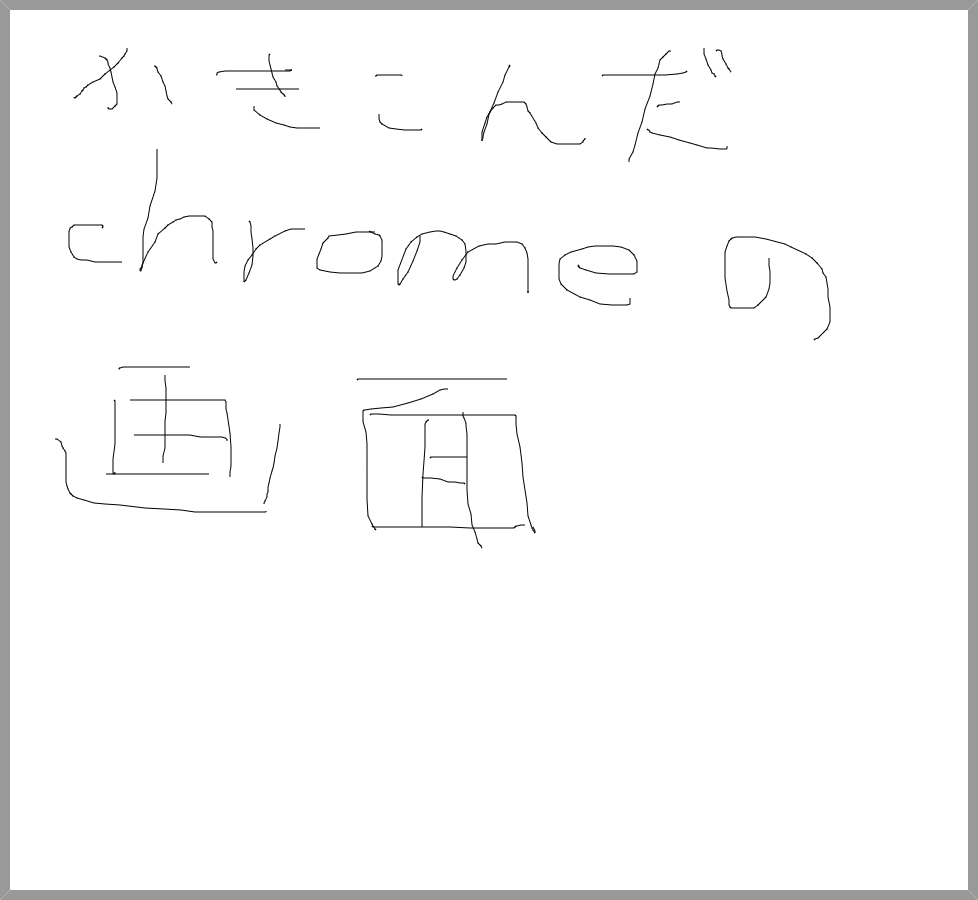 かきこんだ
chromeの
画面